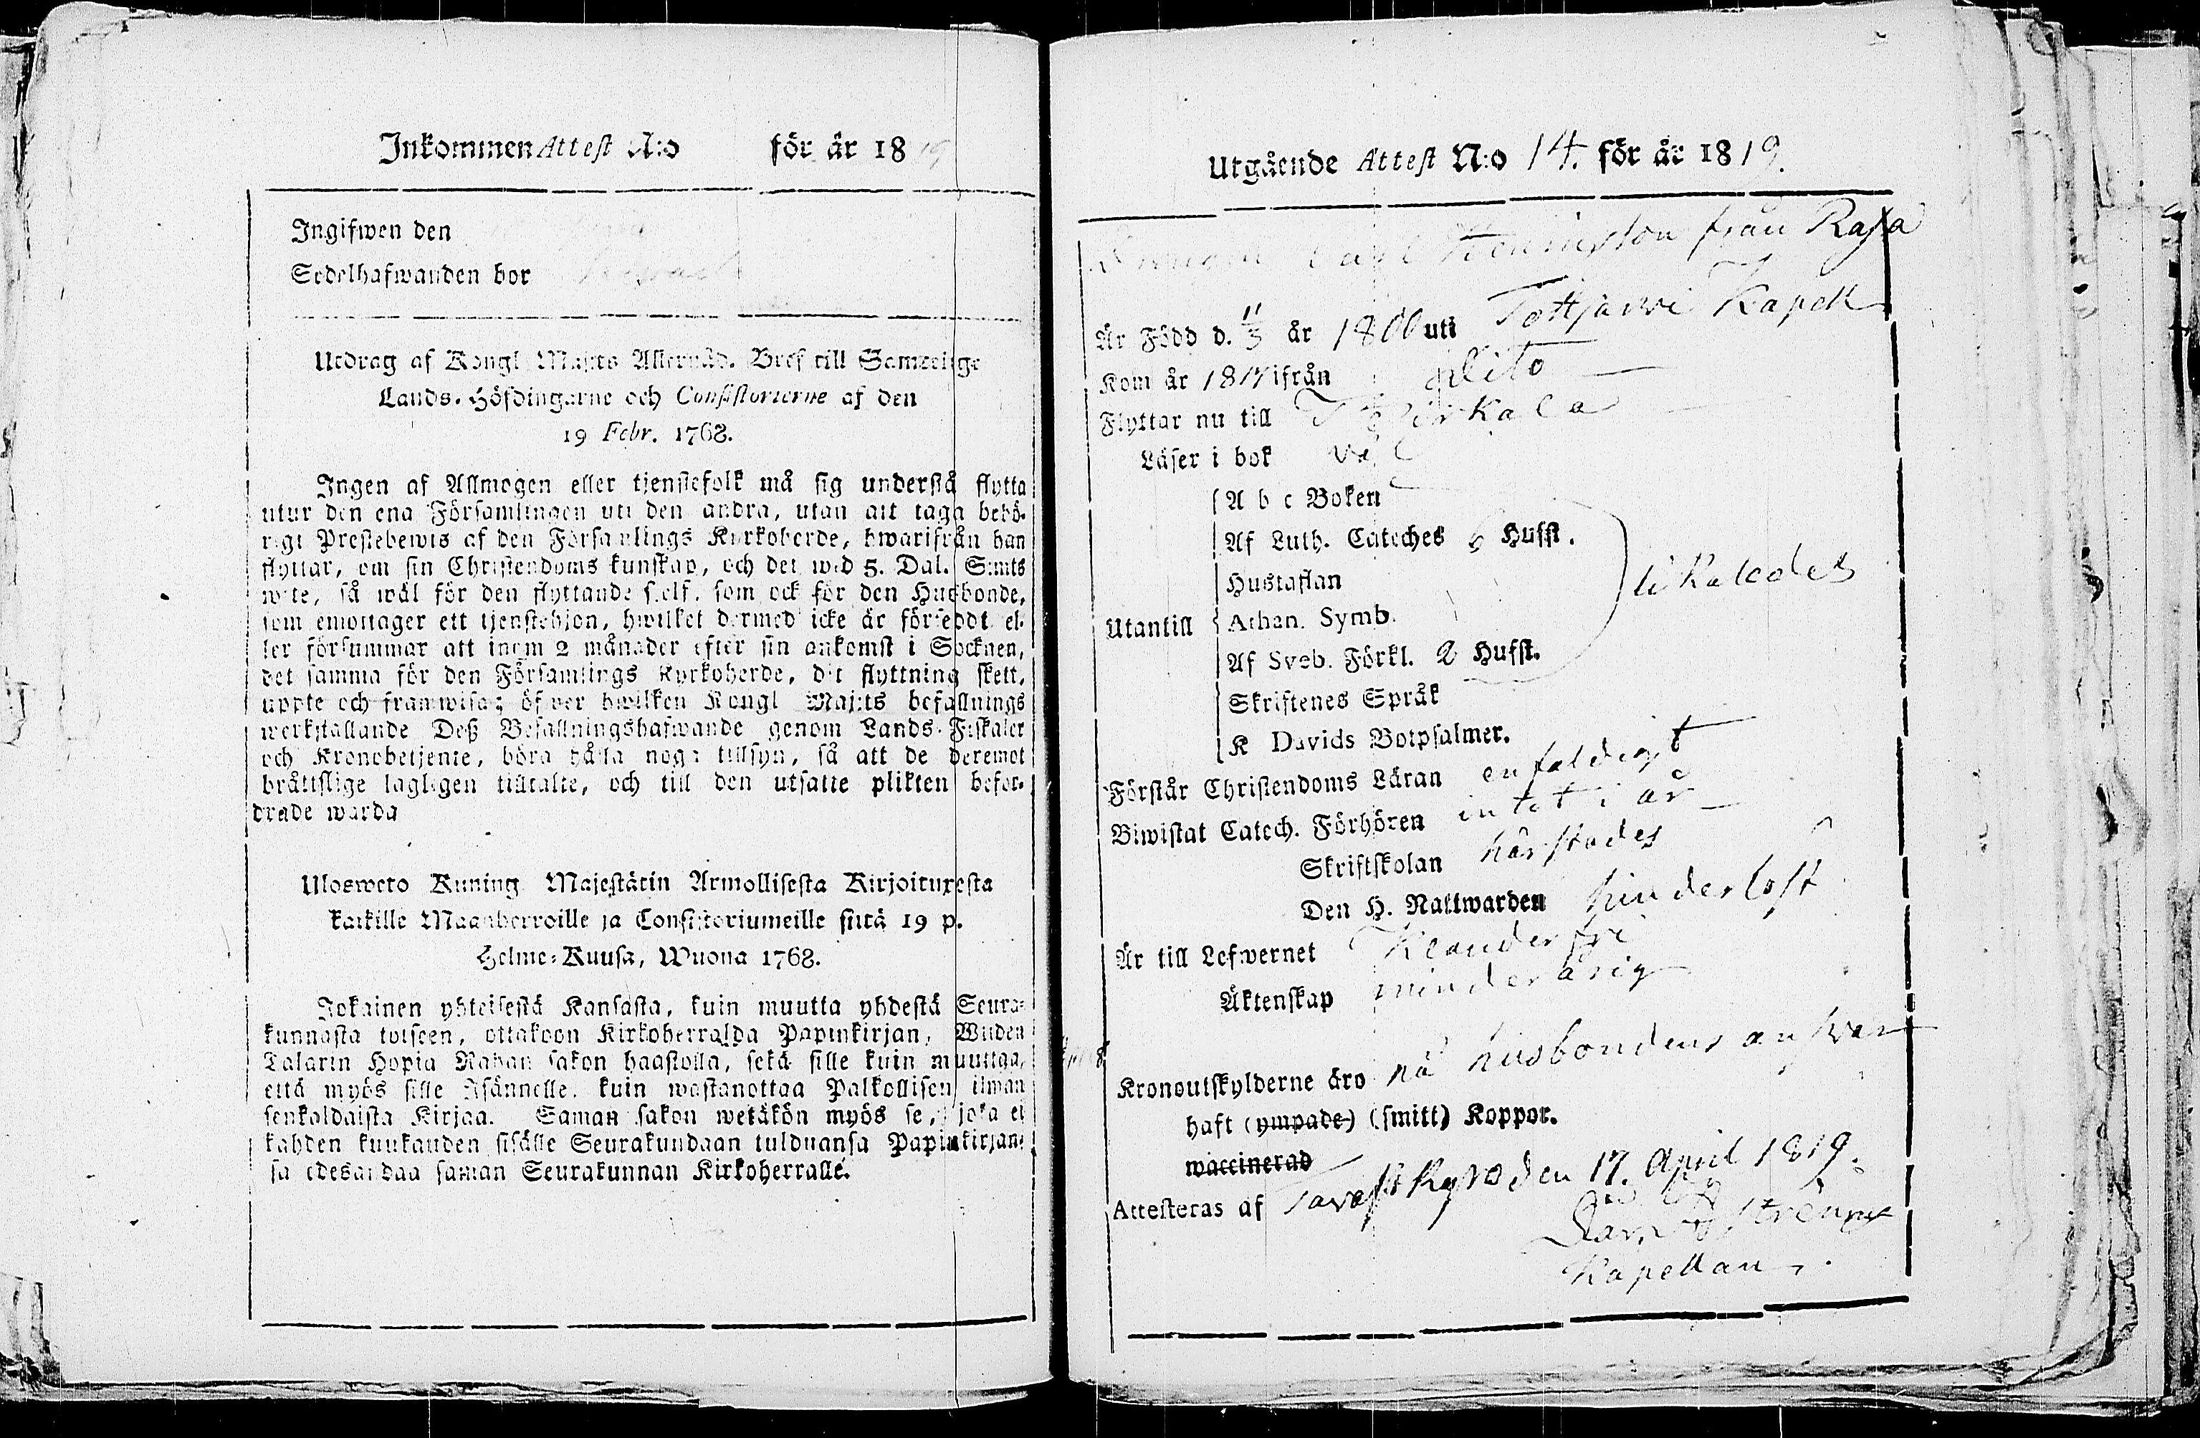 Inkommen Attest N:o för år 1819
Ingifwen den
Sedelhafwanden bor
Utdrag af Kongl Maj:ts Allernåd. Bref till Samtelige
Lands-Höfdingarne och Consistorierne af den
19 Febr. 1768.
Ingen af Allmogen eller tjenstefolk må sig understå flytta
utur den ena Församlingen uti den andra, utan att taga behö-
rigt Prestebewis af den Församlings Kyrkoherde, hwarifrån han
flyttar, om sin Christendoms kunskap, och det wid 5. Dal. S:mts
wite, så wäl för den flyttande sjelf, som ock för den Husbonde,
som emottager ett tjenstehjon, hwilket dermed icke är försedt el-
ler försummar att inom 2 månader efter sin ankomst i Socknen,
det samma för den Församlings Kyrkoherde, dit flyttning skett,
uppte och framwisa; öfwer hwilken Kongl Maj:ts befallnings
werkställande Deß Befallningshafwande genom Lands-Fiskaler
och Kronobetjente, böra hålla noga tillsyn, så att de deremot
bråttslige lagligen tilltalte, och till den utsatte plikten befor-
drade warda
Ulosweto Kuning Majestätin Armollisesta Kirjoituxesta
kaikille Maanherroille ja Consistoriumeille siitä 19 p.
Helme-Kuusa, Wuona 1768.
Jokainen yhteisestä Kansasta, kuin muutta yhdestä Seura-
kunnasta toiseen, ottakoon Kirkoherralda Papinkirjan, Wiiden
Talarin Hopia Rahan sakon haastolla, sekä sille kuin muuttaa,
että myös sille Isännelle, kuin wastanottaa Palkollisen ilman
senkaldaista Kirjaa. Saman sakon wetäkön myös se, joka ei
kahden kuukauden sisälle Seurakundaan tulduansa Papinkirjan-
sa edesandaa saman Seurakunnan Kirkoherralle.
Utgående Attest N:o 14. för år 1819.
Drengen Carl Henriksson från Rasa
Är Född d. 11/3 år 1800 uti Tottjärwi Kapell
Kom år 1817 ifrån dito
Flyttar nu till Birkala
Läser i bok wäl
Utantill
A b c Boken
Af Luth. Cateches 6 Hufst.
Hustaflan
Athan. Symb.
Af Sveb. Förkl. 2 Hufst.
Skriftenes Språk
K Davids Botpsalmer.
likaledes
Förstår Christendoms Läran enfaldigt
Biwistat Catech. Förhören intet i år
Skriftskolan härstädes
Den H. Nattwarden hinderlöst
Är till Lefwernet Klanderfri
Äktenskap minderårig
Kronoutskylderne äro på husbondens answar
haft (ympade) (smitt) Koppor.
waccinerad
Attesteras af Tavastkyro den 17. April 1819.
Kapellan.